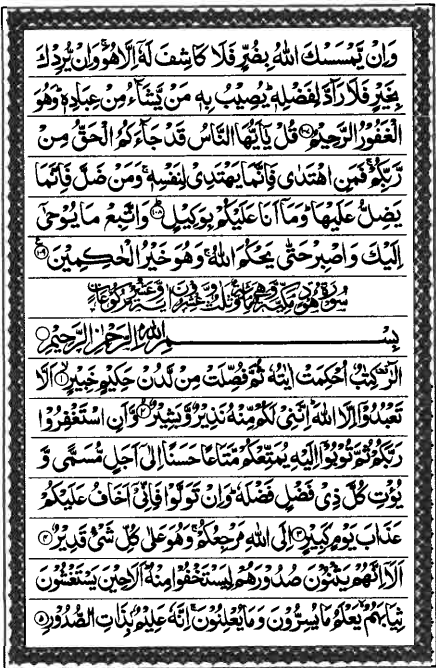 وَاِنْ يَّمْسَسْكَ اللّٰهُ بِضُرٍّ فَلَا كَاشِفَ لَهٗٓ اِلَّا هُوَ ۚ وَاِنْ يُّرِدْكَ
بِخَيْرٍ فَلَا رَآدَّ لِفَضْلِهٖ ؕ يُصِيْبُ بِهٖ مَنْ يَّشَآءُ مِنْ عِبَادِهٖ ؕ وَهُوَ
الْغَفُوْرُ الرَّحِيْمُ ﴿۱۰۷﴾ قُلْ يٰٓاَيُّهَا النَّاسُ قَدْ جَآءَكُمُ الْحَقُّ مِنْ
رَّبِّكُمْ ۚ فَمَنِ اهْتَدٰى فَاِنَّمَا يَهْتَدِىْ لِنَفْسِهٖ ۚ وَمَنْ ضَلَّ فَاِنَّمَا
يَضِلُّ عَلَيْهَا ؕ وَمَآ اَنَا عَلَيْكُمْ بِوَكِيْلٍ ﴿۱۰۸﴾ وَاتَّبِعْ مَا يُوْحٰٓى
اِلَيْكَ وَاصْبِرْ حَتّٰى يَحْكُمَ اللّٰهُ ۚ وَهُوَ خَيْرُ الْحٰكِمِيْنَ ﴿۱۰۹﴾
بِسْمِ اللّٰهِ الرَّحْمٰنِ الرَّحِيْمِ
الٓرٰ ۚ كِتٰبٌ اُحْكِمَتْ اٰيٰتُهٗ ثُمَّ فُصِّلَتْ مِنْ لَّدُنْ حَكِيْمٍ خَبِيْرٍ ﴿۱﴾ اَلَّا
تَعْبُدُوْٓا اِلَّا اللّٰهَ ؕ اِنَّنِىْ لَكُمْ مِّنْهُ نَذِيْرٌ وَّبَشِيْرٌ ﴿۲﴾ وَّاَنِ اسْتَغْفِرُوْا
رَبَّكُمْ ثُمَّ تُوْبُوْٓا اِلَيْهِ يُمَتِّعْكُمْ مَّتَاعًا حَسَنًا اِلٰٓى اَجَلٍ مُّسَمًّى وَّ
يُؤْتِ كُلَّ ذِىْ فَضْلٍ فَضْلَهٗ ؕ وَاِنْ تَوَلَّوْا فَاِنِّىْٓ اَخَافُ عَلَيْكُمْ
عَذَابَ يَوْمٍ كَبِيْرٍ ﴿۳﴾ اِلَى اللّٰهِ مَرْجِعُكُمْ ۚ وَهُوَ عَلٰى كُلِّ شَىْءٍ قَدِيْرٌ ﴿۴﴾
اَلَآ اِنَّهُمْ يَثْنُوْنَ صُدُوْرَهُمْ لِيَسْتَخْفُوْا مِنْهُ ؕ اَلَا حِيْنَ يَسْتَغْشُوْنَ
ثِيَابَهُمْ ۙ يَعْلَمُ مَا يُسِرُّوْنَ وَمَا يُعْلِنُوْنَ ۚ اِنَّهٗ عَلِيْمٌۢ بِذَاتِ الصُّدُوْرِ ﴿۵﴾